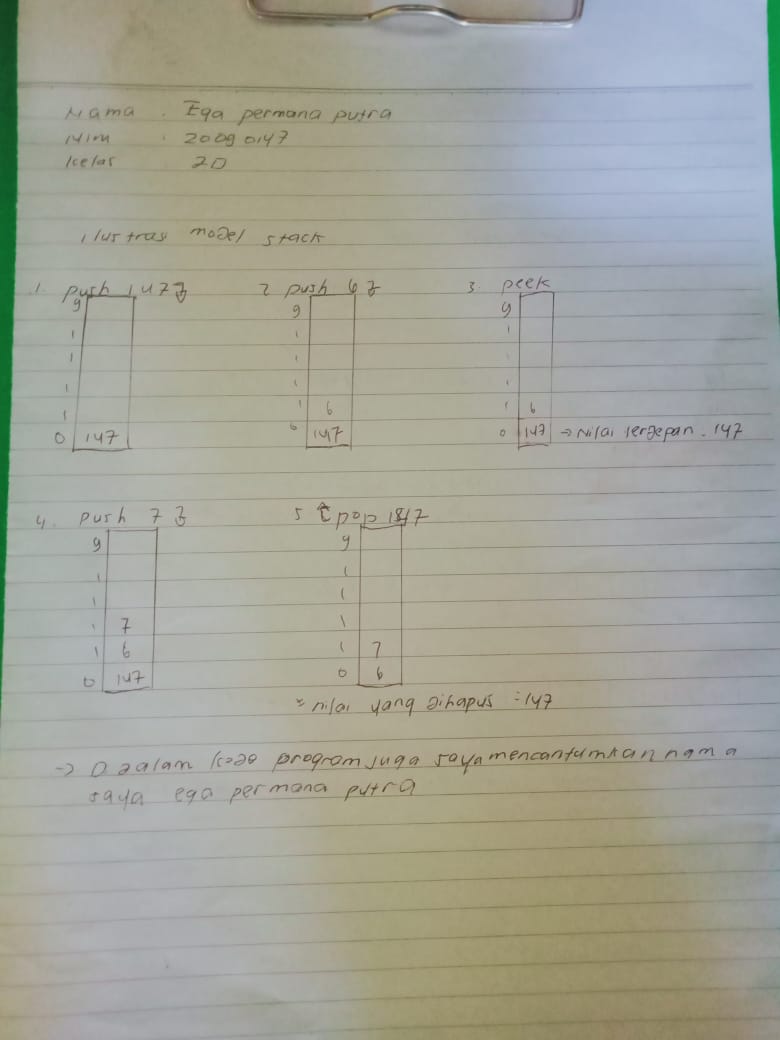 Nama : Ega permana putra
Nim : 20090147
Kelas 2D
ilustrasi model stack
1. push 147
9
0 147
2 push 6
9
6
0 147
3. peek
9
6
0 147 → Nilai terdepan . 147
4. push 7
9
7
6
0 147
5 pop 147
9
7
0 6
= nilai yang dihapus = 147
→ D dalam kode program juga saya mencantumkan nama
saya ega permana putra